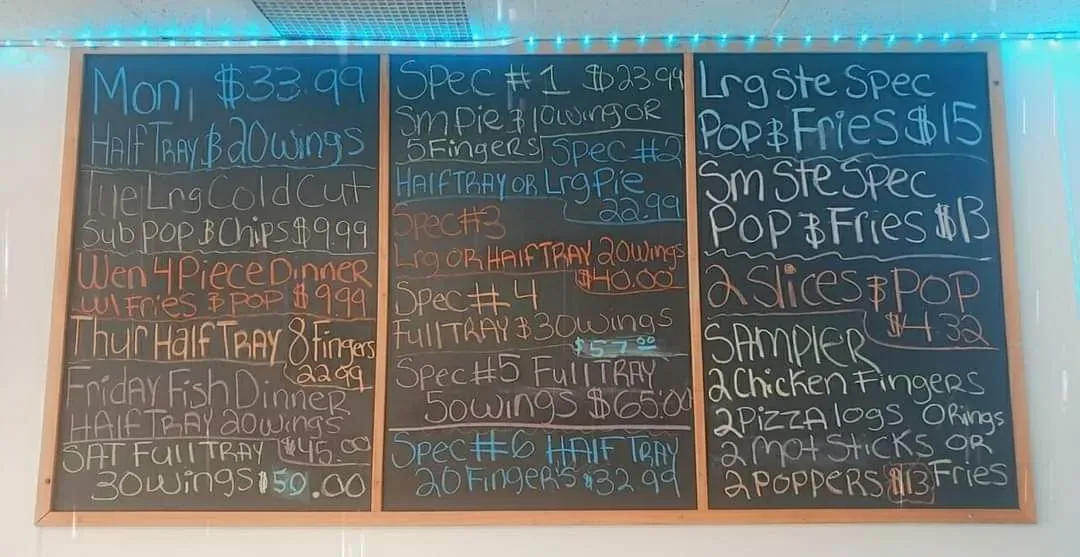 Mon $33.99
HALF TRAY & 20 wings
Tue Lrg Cold Cut
Sub POP & Chips $9.99
Wen 4 Piece Dinner
w/ Fries & POP $9.99
Thur HALF TRAY 8 Fingers
22.99
Friday Fish Dinner
HALF TRAY 20 wings
$45.00
SAT Full TRAY
30 wings $59.00
Spec #1 $23.99
Sm Pie & 10 wing OR
5 Fingers
Spec #2
HALF TRAY OR Lrg Pie
22.99
Spec #3
Lrg OR HALF TRAY 20 wings
$40.00
Spec #4
Full TRAY & 30 wings
$57.00
Spec #5 Full TRAY
50 wings $65.00
Spec #6 HALF TRAY
20 Fingers $32.99
Lrg Ste Spec
Pop & Fries $15
Sm Ste Spec
Pop & Fries $13
2 Slices & POP
$4.32
SAMPLER
2 Chicken Fingers
2 Pizza logs O Rings
2 Mot Sticks OR
2 POPPERS $13 Fries